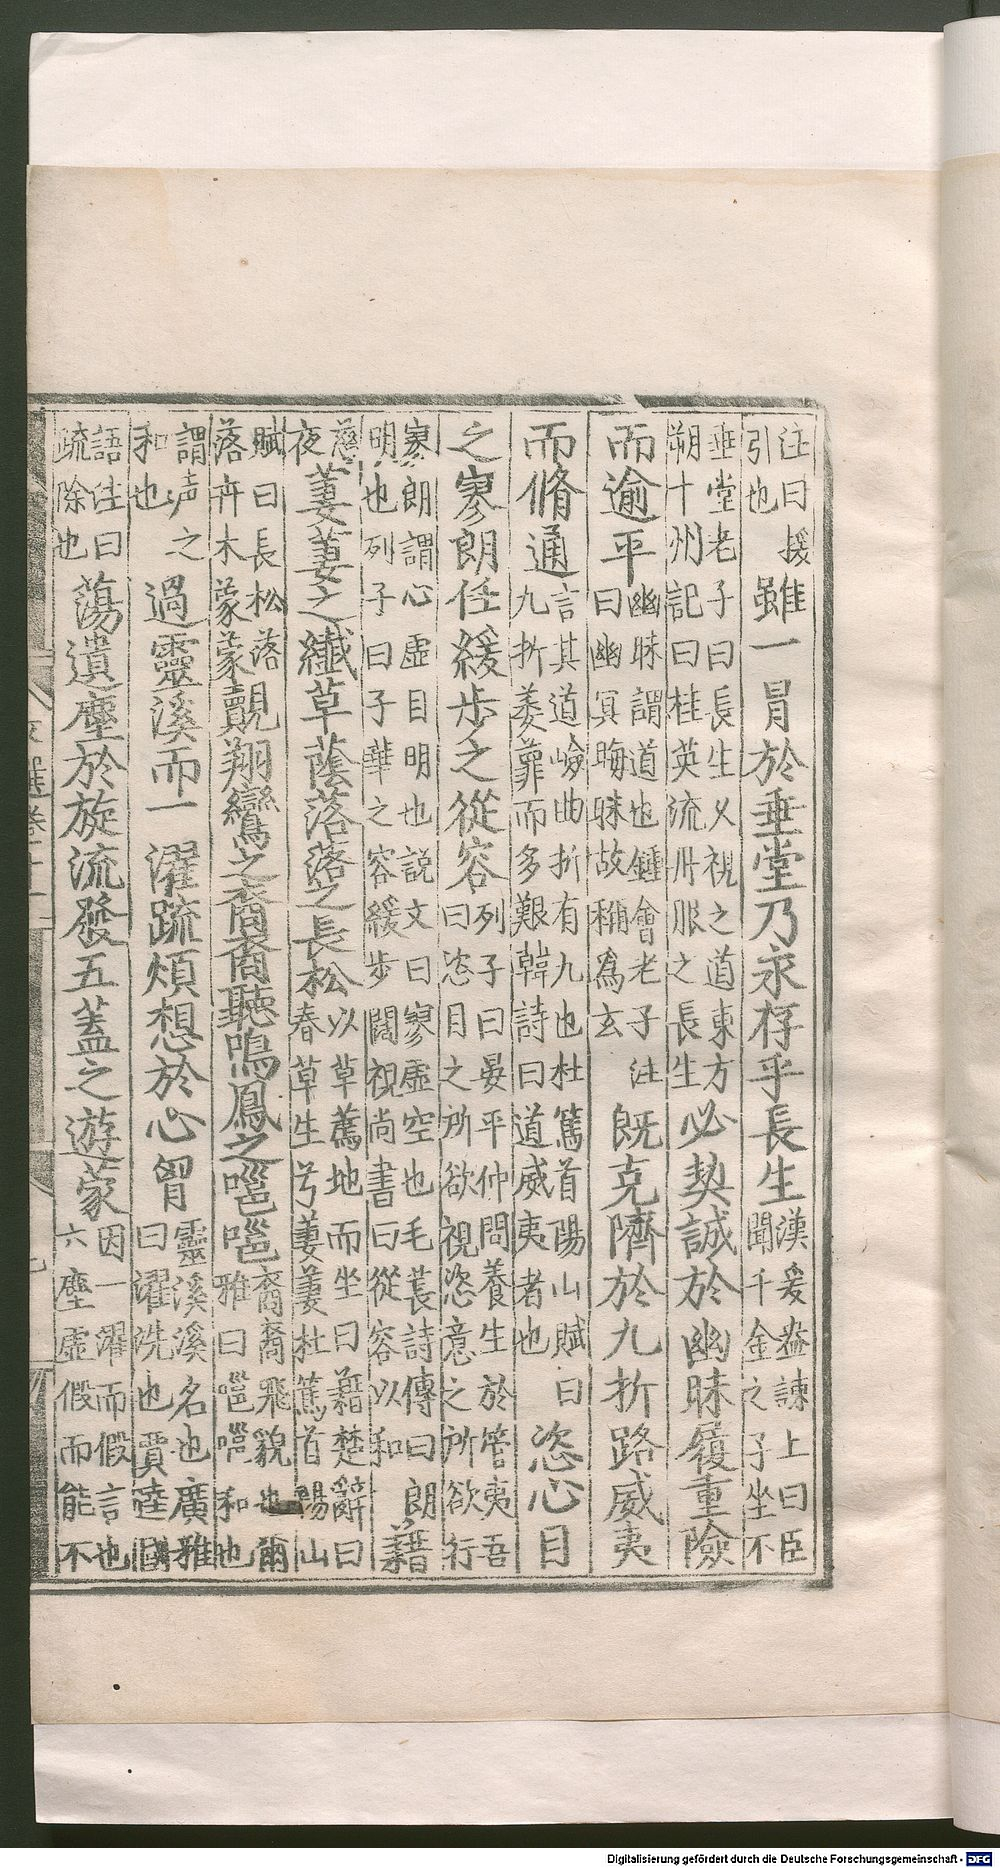 注曰援
引也
雖一冒於垂堂乃永存乎長生
漢爰盎諫上曰臣
聞千金之子坐不
垂堂老子曰長生乆視之道東方
朔十州記曰桂英流丹服之長生
必契誠於幽昧履重險
而逾平
幽昧謂道也鍾會老子注
曰幽冥晦昧故稱爲玄
既克隮於九折路威夷
而脩通
言其道嶮曲折有九也杜篤首陽山賦曰
九折萎蕤而多艱韓詩曰道威夷者也
恣心目
之寥朗任緩步之從容
列子曰晏平仲問養生於管夷吾
曰恣目之所欲視恣意之所欲行
寥朗謂心虛目明也說文曰寥虛空也毛萇詩傳曰朗
明也列子曰子華之容緩步闊視尚書曰從容以和
藉
萋萋之纖草蔭落落之長松
以草薦地而坐曰藉楚辭曰
春草生兮萋萋杜篤首陽山
賦曰長松落
落卉木蒙蒙
覿翔鸞之裔裔聽鳴鳳之嗈嗈
裔裔飛貌也爾
雅曰嗈嗈和也
謂声之
和也
過靈溪而一濯疏煩想於心胷
靈溪溪名也廣雅
曰濯洗也賈逵國
語注曰
疏除也
蕩遺塵於旋流發五蓋之遊蒙
因一濯而假言也
六塵虛假而能不
Digitalisierung gefördert durch die Deutsche Forschungsgemeinschaft - DFG